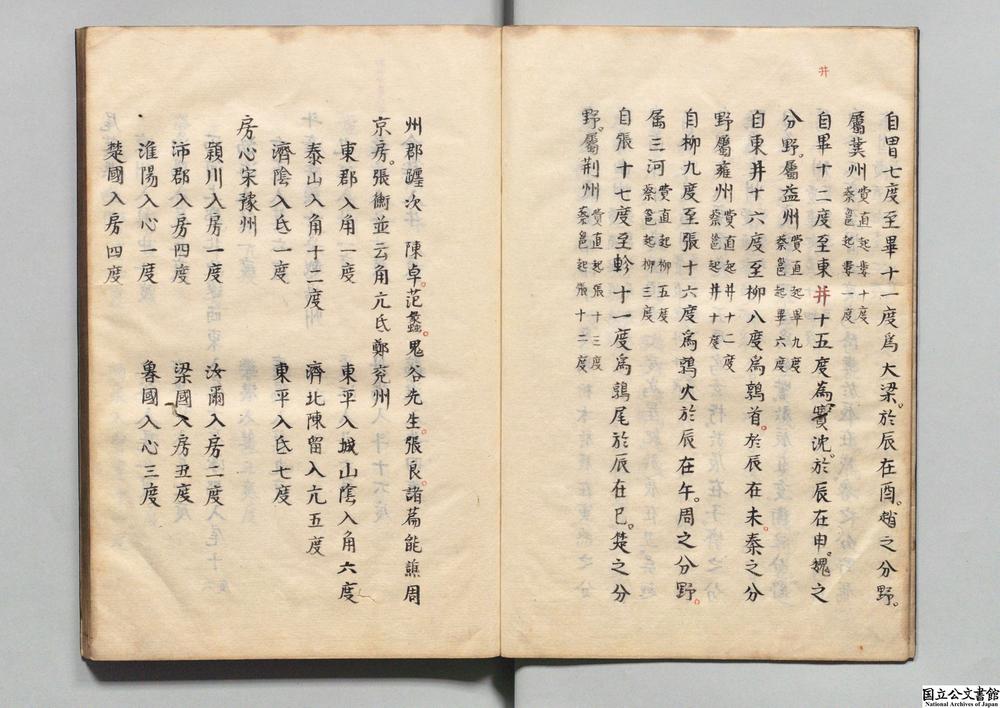 井
自胃七度至畢十一度爲大梁。於辰在酉。趙之分野。
屬冀州 費直起婁十度 蔡邕起婁一度
自畢十二度至東井十五度爲實沈。於辰在申。魏之
分野。屬益州 費直起畢九度 蔡邕起畢六度
自東井十六度至柳八度爲鶉首。於辰在未。秦之分
野屬雍州 費直起井十二度 蔡邕起井十度
自柳九度至張十六度爲鶉火於辰在午。周之分野。
属三河 費直起柳五度 蔡邕起柳三度
自張十七度至軫十一度爲鶉尾於辰在巳。楚之分
野。屬荆州 費直起張十三度 蔡邕起張十二度
州郡躔次 陳卓。范蠡。鬼谷先生。張良。諸葛能譙周
京房。張衡並云角亢氐鄭兗州
東郡入角一度 東平入城山陰入角六度
泰山入角十二度 濟北陳留入亢五度
濟陰入氐一度 東平入氐七度
房心宋豫州
潁川入房一度 汝爾入房二度
沛郡入房四度 梁國入房五度
淮陽入心一度 魯國入心三度
楚國入房四度
国立公文書館
National Archives of Japan